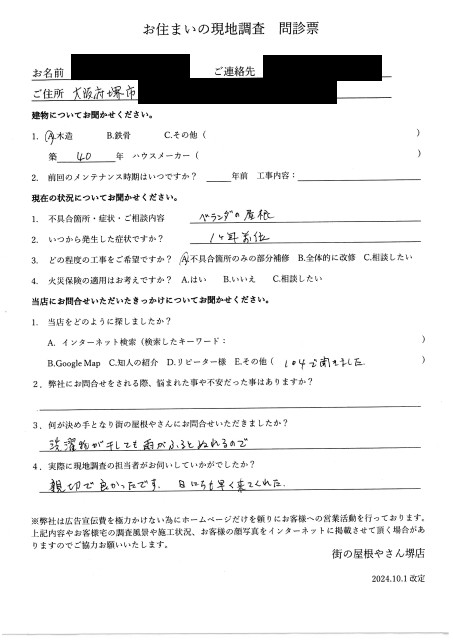 お住まいの現地調査 問診票
お名前 ご連絡先
ご住所 大阪府堺市
建物についてお聞かせください。
1. A.木造 B.鉄骨 C.その他 ( )
築 40 年 ハウスメーカー ( )
2. 前回のメンテナンス時期はいつですか? 年前 工事内容:
現在の状況についてお聞かせください。
1. 不具合箇所・症状・ご相談内容 ベランダの屋根
2. いつから発生した症状ですか? 1ヶ月前位
3. どの程度の工事をご希望ですか? A.不具合箇所のみの部分補修 B.全体的に改修 C.相談したい
4. 火災保険の適用はお考えですか? A.はい B.いいえ C.相談したい
当店にお問合せいただいたきっかけについてお聞かせください。
1. 当店をどのように探しましたか?
A. インターネット検索(検索したキーワード: )
B.Google Map C.知人の紹介 D.リピーター様 E.その他 ( 104で聞きました )
2.弊社にお問合せをされる際、悩まれた事や不安だった事はありますか?
3.何が決め手となり街の屋根やさんにお問合せいただきましたか?
洗濯物が干しても雨がふるとぬれるので
4.実際に現地調査の担当者がお伺いしていかがでしたか?
親切で良かったです. 日にちも早く来てくれた.
※弊社は広告宣伝費を極力かけない為にホームページだけを頼りにお客様への営業活動を行っております。
上記内容やお客様宅の調査風景や施工状況、お客様の顔写真をインターネットに掲載させて頂く場合があ
りますのでご協力お願いいたします。
街の屋根やさん堺店
2024.10.1 改定